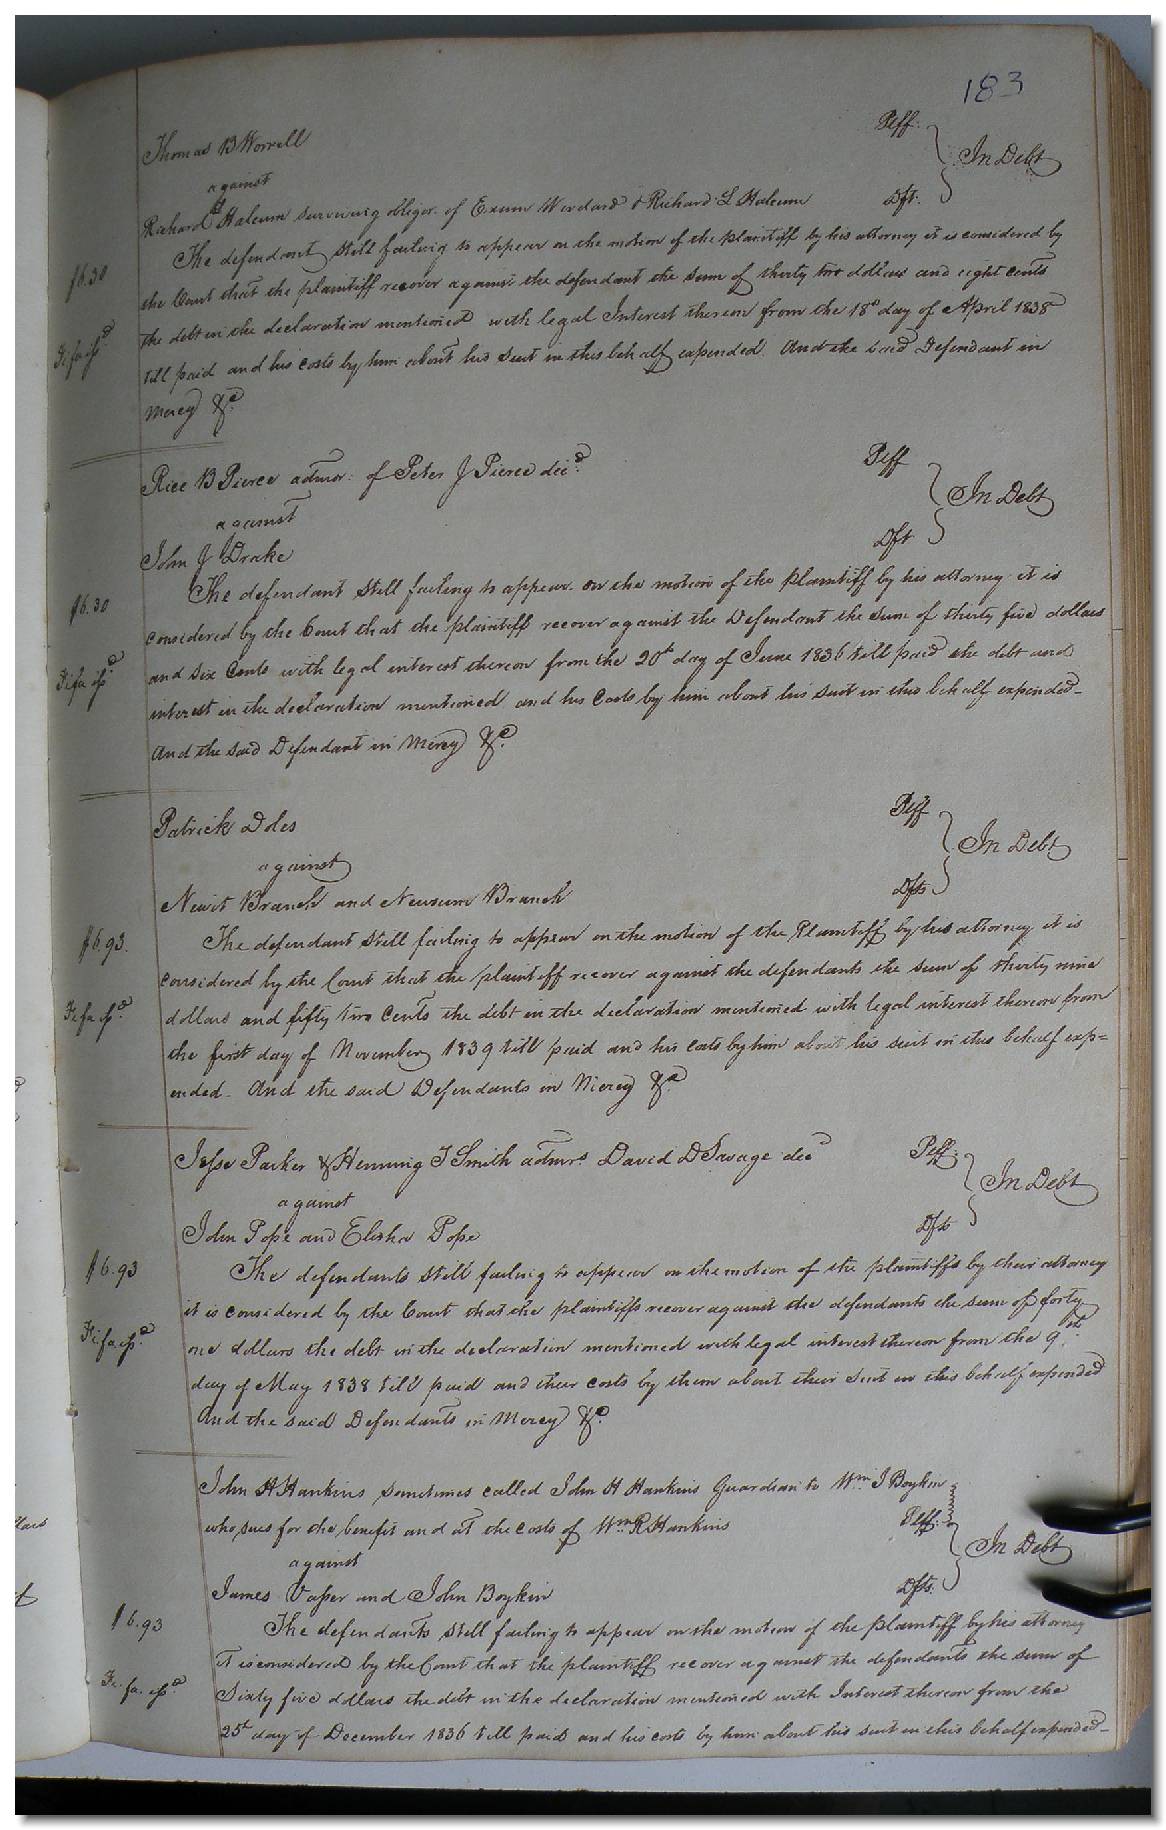 183
Thomas B Worrell Plff.
against In Debt
Richard Holcum surviving obligor of Exum Woodard & Richard L Holcum Dft.
The defendant still failing to appear on the motion of the plaintiff by his attorney it is considered by
$6.30 the Court that the plaintiff recover against the defendant the sum of thirty two dollars and eight cents
the debt in the declaration mentioned with legal Interest thereon from the 18th day of April 1838
Fi fa till paid and his costs by him about his suit in this behalf expended. And the said Defendant in
Mercy &c.
Rice B Pierce admor. of Peter J Pierce decd. Plff
against In Debt
John J Drake Dft
The defendant still failing to appear on the motion of the plaintiff by his attorney it is
$6.30 considered by the Court that the plaintiff recover against the Defendant the sum of thirty five dollars
and six Cents with legal interest thereon from the 20th day of June 1836 till paid the debt and
Fi fa interest in the declaration mentioned and his costs by him about his suit in this behalf expended-
And the said Defendant in Mercy &c.
Patrick Doles Plff
against In Debt
Newit Branch and Newsum Branch Dfts
$6.93. The defendant still failing to appear on the motion of the Plaintiff by his attorney it is
considered by the Court that the plaintiff recover against the defendants the sum of thirty nine
Fi fa dollars and fifty two Cents the debt in the declaration mentioned with legal interest thereon from
the first day of November 1839 till paid and his costs by him about his suit in this behalf exp=
ended- And the said Defendants in Mercy &c.
Jesse Parker & Henning T Smith admrs. David D Savage decd Plff.
against In Debt
John Pope and Elisha Pope Dfts
$6.93 The defendants still failing to appear on the motion of the plaintiffs by their attorney
it is considered by the Court that the plaintiffs recover against the defendants the sum of forty
Fi fa one dollars the debt in the declaration mentioned with legal interest thereon from the 9th.
day of May 1838 till paid and their costs by them about their suit in this behalf expended
And the said Defendants in Mercy &c.
John H Hankins sometimes called John H Hankins Guardian to Wm J Boykin
who sues for the benefit and at the costs of Wm R Hankins Plff.
against In Debt
James Vasser and John Boykin Dfts.
$6.93 The defendants still failing to appear on the motion of the plaintiff by his attorney
it is considered by the Court that the plaintiff recover against the defendants the sum of
Fi. fa. Sixty five dollars the debt in the declaration mentioned with Interest thereon from the
25th day of December 1836 till paid and his costs by him about his suit in this behalf expended-